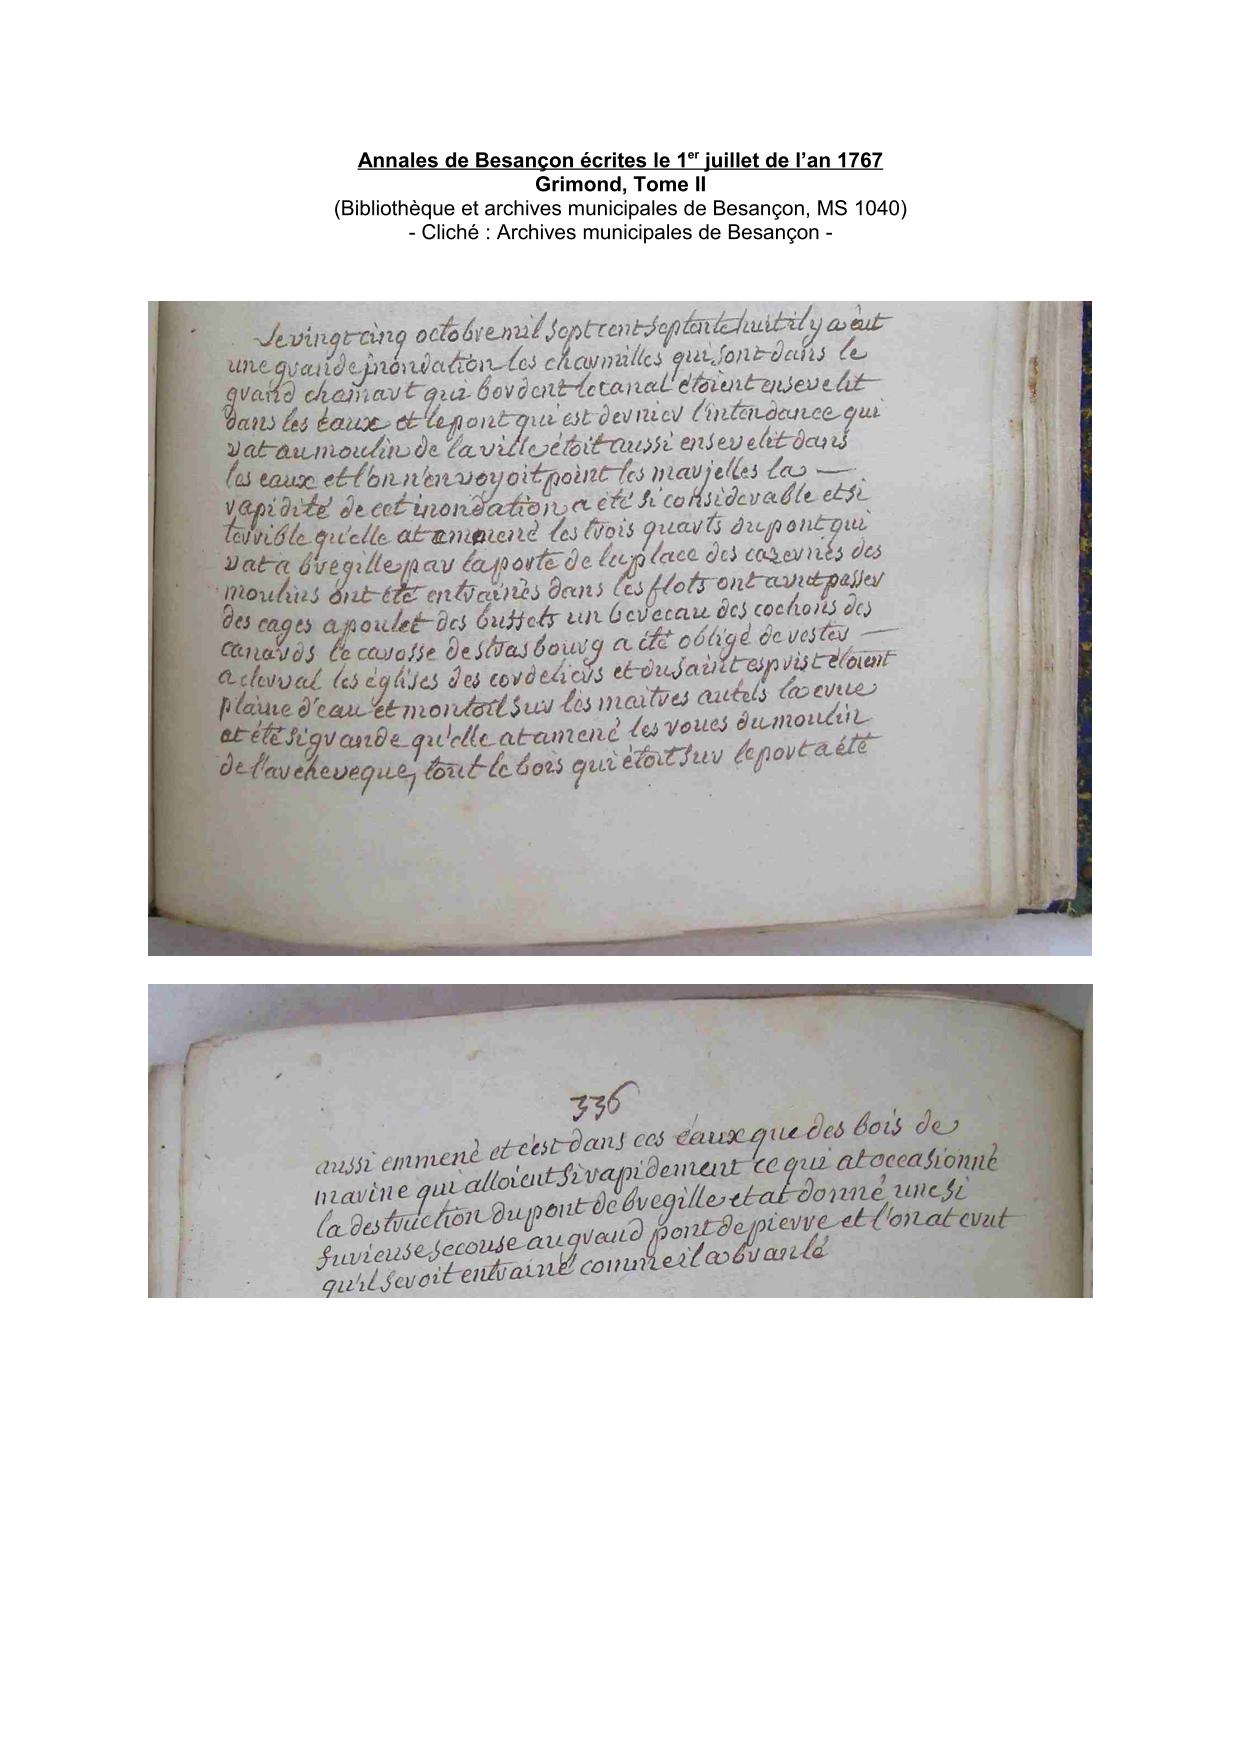 Annales de Besançon écrites le 1er juillet de l’an 1767
Grimond, Tome II
(Bibliothèque et archives municipales de Besançon, MS 1040)
- Cliché : Archives municipales de Besançon -
Le vingt cinq octobre mil sept cent septente huit il y a eut
une grande jnondation les charmilles qui sont dans le
grand chamart qui bordent le canal étoient ensevelit
dans les éaux et le pont qui est derrier l'intendance qui
vat au moulin de la ville étoit aussi ensevelit dans
les eaux et l'on n'en voyoit point les marjelles la —
rapidité de cet inondation a été si considerable et si
terrible qu'elle at ammené les trois quarts du pont qui
vat a bregille par la porte de la place des cazernes des
moulins ont été entrainés dans les flots ont a vut passer
des cages a poulet des buffets un berceau des cochons des
canards le carosse de strasbourg a été obligé de rester —
a clerval les églises des cordeliers et du saint esprist étoient
plaine d'eau et montoit sur les maitres autels la crue
at été si grande qu'elle at amené les roues du moulin
de l'archeveque, tout le bois qui étoit sur le port a été
336
aussi emmené et c'est dans ces éaux que des bois de
marine qui alloient si rapidement ce qui at occasionné
la destruction du pont de bregille et at donné une si
furieuse secouse au grand pont de pierre et l'on at crut
qu'il seroit entrainé comme il a branlé